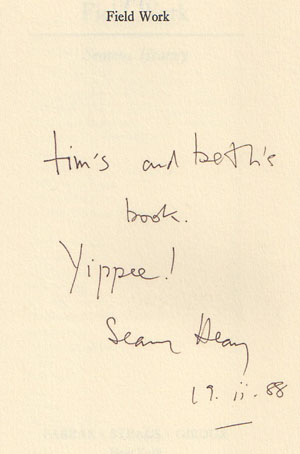 Field Work
tim's and beth's
book.
Yippee!
Seamus Heaney
19. ii. 88